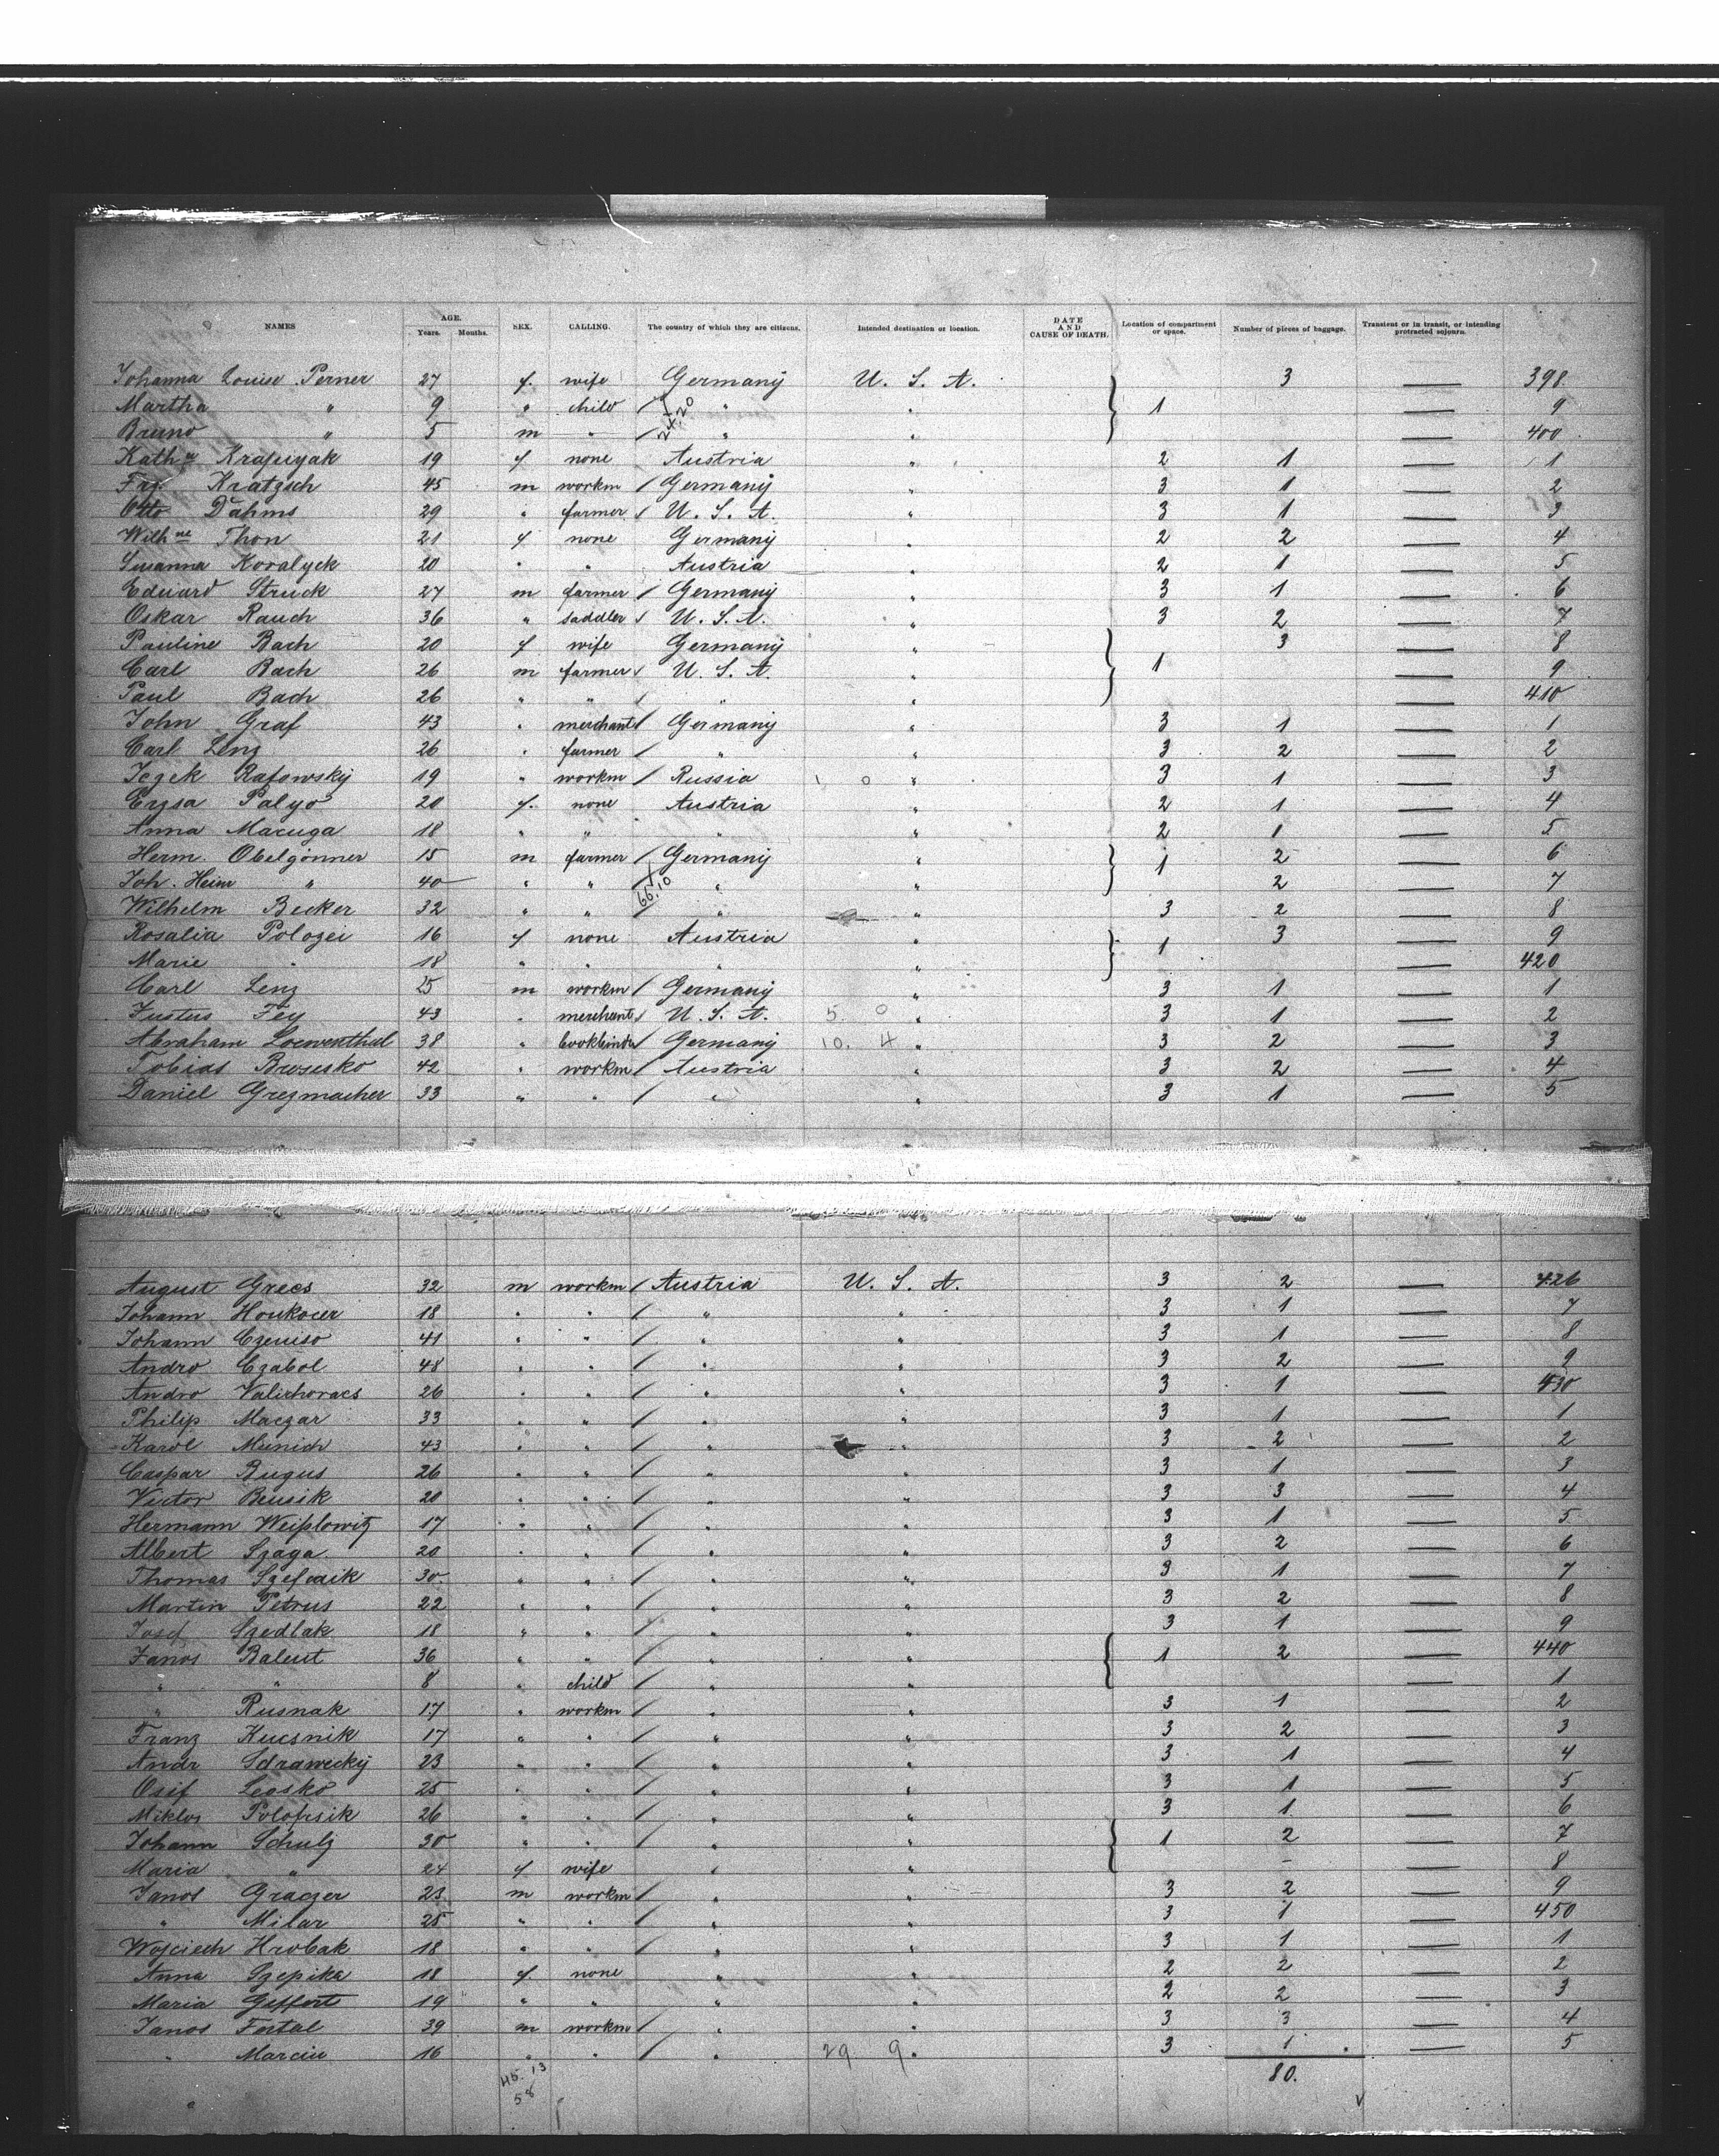 NAMES AGE. Years. Months. SEX. CALLING. The country of which they are citizens. Intended destination or location. DATE AND CAUSE OF DEATH. Location of compartment or space. Number of pieces of baggage. Transient or in transit, or intending protracted sojourn.
Johanna Louise Perner 27 f. wife Germany U. S. A. 3 — 398
Martha " 9 " child / " " 1 — 9
Bruno " 5 m " / " " — 400
24.20
Kath Krajczyak 19 f none Austria " 2 1 — 1
Frz. Kratzsch 45 m workm / Germany " 3 1 — 2
Otto Dahms 29 " farmer / U. S. A. " 3 1 — 3
Wilhne Thon 21 f none Germany " 2 2 — 4
Susanna Koralyck 20 " " Austria " 2 1 — 5
Eduard Struck 27 m farmer / Germany " 3 1 — 6
Oskar Rauch 36 " saddler / U. S. A. " 3 2 — 7
Pauline Bach 20 f wife Germany " 3 — 8
Carl Bach 26 m farmer / U. S. A. " 1 — 9
Paul Bach 26 " " / " " — 410
John Graf 43 " merchant / Germany " 3 1 — 1
Carl Lenz 26 " farmer / " " 3 2 — 2
Iczek Rafowsky 19 " workm / Russia 1 0 " 3 1 — 3
Erzsa Palyo 20 f. none Austria " 2 1 — 4
Anna Macuga 18 " " " " 2 1 — 5
Herm. Obelgönner 15 m farmer / Germany " 1 2 — 6
Joh. Heinr " 40 " " / " " 2 — 7
66.10
Wilhelm Becker 32 " " / " " 3 2 — 8
Rosalia Polozei 16 f none Austria " 1 3 — 9
Marie " 18 " " " " — 420
Carl Lenz 25 m workm / Germany " 3 1 — 1
Justus Fey 43 " merchant / U. S. A. 5 0 " 3 1 — 2
Abraham Loewenthal 38 " bookbinder / Germany 10. 4 " 3 2 — 3
Tobias 42 " workm / Austria " 3 2 — 4
Daniel Grezmacher 33 " " / " " 3 1 — 5
August Grecs 32 m workm / Austria U. S. A. 3 2 — 426
Johann Houkocer 18 " " / " " 3 1 — 7
Johann 41 " " / " " 3 1 — 8
Andro Czabol 48 " " / " " 3 2 — 9
Andro Valichoracs 26 " " / " " 3 1 — 430
Philip Maczar 33 " " / " " 3 1 — 1
Karol Munich 43 " " / " " 3 2 — 2
Caspar Bugus 26 " " / " " 3 1 — 3
Victor Beusik 20 " " / " " 3 3 — 4
Hermann Weißlowitz 17 " " / " " 3 1 — 5
Albert Szaga 20 " " / " " 3 2 — 6
Thomas 30 " " / " " 3 1 — 7
Martin Petrus 22 " " / " " 3 2 — 8
Josef Szedlak 18 " " / " " 3 1 — 9
Janos Balint 36 " " / " " 1 2 — 440
" " 8 " child / " " — 1
" Rusnak 17 " workm / " " 3 1 — 2
Franz Kucsnik 17 " " / " " 3 2 — 3
Andr Sdrawecky 23 " " / " " 3 1 — 4
Osif Lesko 25 " " / " " 3 1 — 5
Miklos 26 " " / " " 3 1 — 6
Johann Schulz 30 " " / " " 1 2 — 7
Maria " 24 f wife " " — 8
Janos Graczer 23 m workm / " " 3 2 — 9
" Milar 25 " " / " " 3 1 — 450
Wojciech Hrobak 18 " " / " " 3 1 — 1
Anna Szepika 18 f. none " " 2 2 — 2
Maria Geffert 19 " " " " 2 2 — 3
Janos Fertal 39 m workm / " " 3 3 — 4
" Marciu 16 " " / " 29 9 " 3 1 — 5
45. 13
58
80.